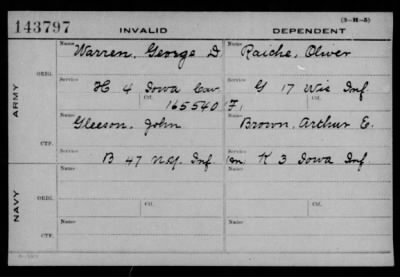 143797 INVALID DEPENDENT (3-H-5)
ARMY
NAVY
ORIG.
Name Warren, George D. Name Raiche, Oliver
Service H 4 Iowa Cav Service G 17 Wis Inf
Ctf. 165540 Ctf. F
CTF.
Name Gleeson, John Name Brown, Arthur E.
Service B 47 N.Y. Inf Service K 3 Iowa Inf
ORIG.
Name Name
Ctf. Ctf.
CTF.
Name Name